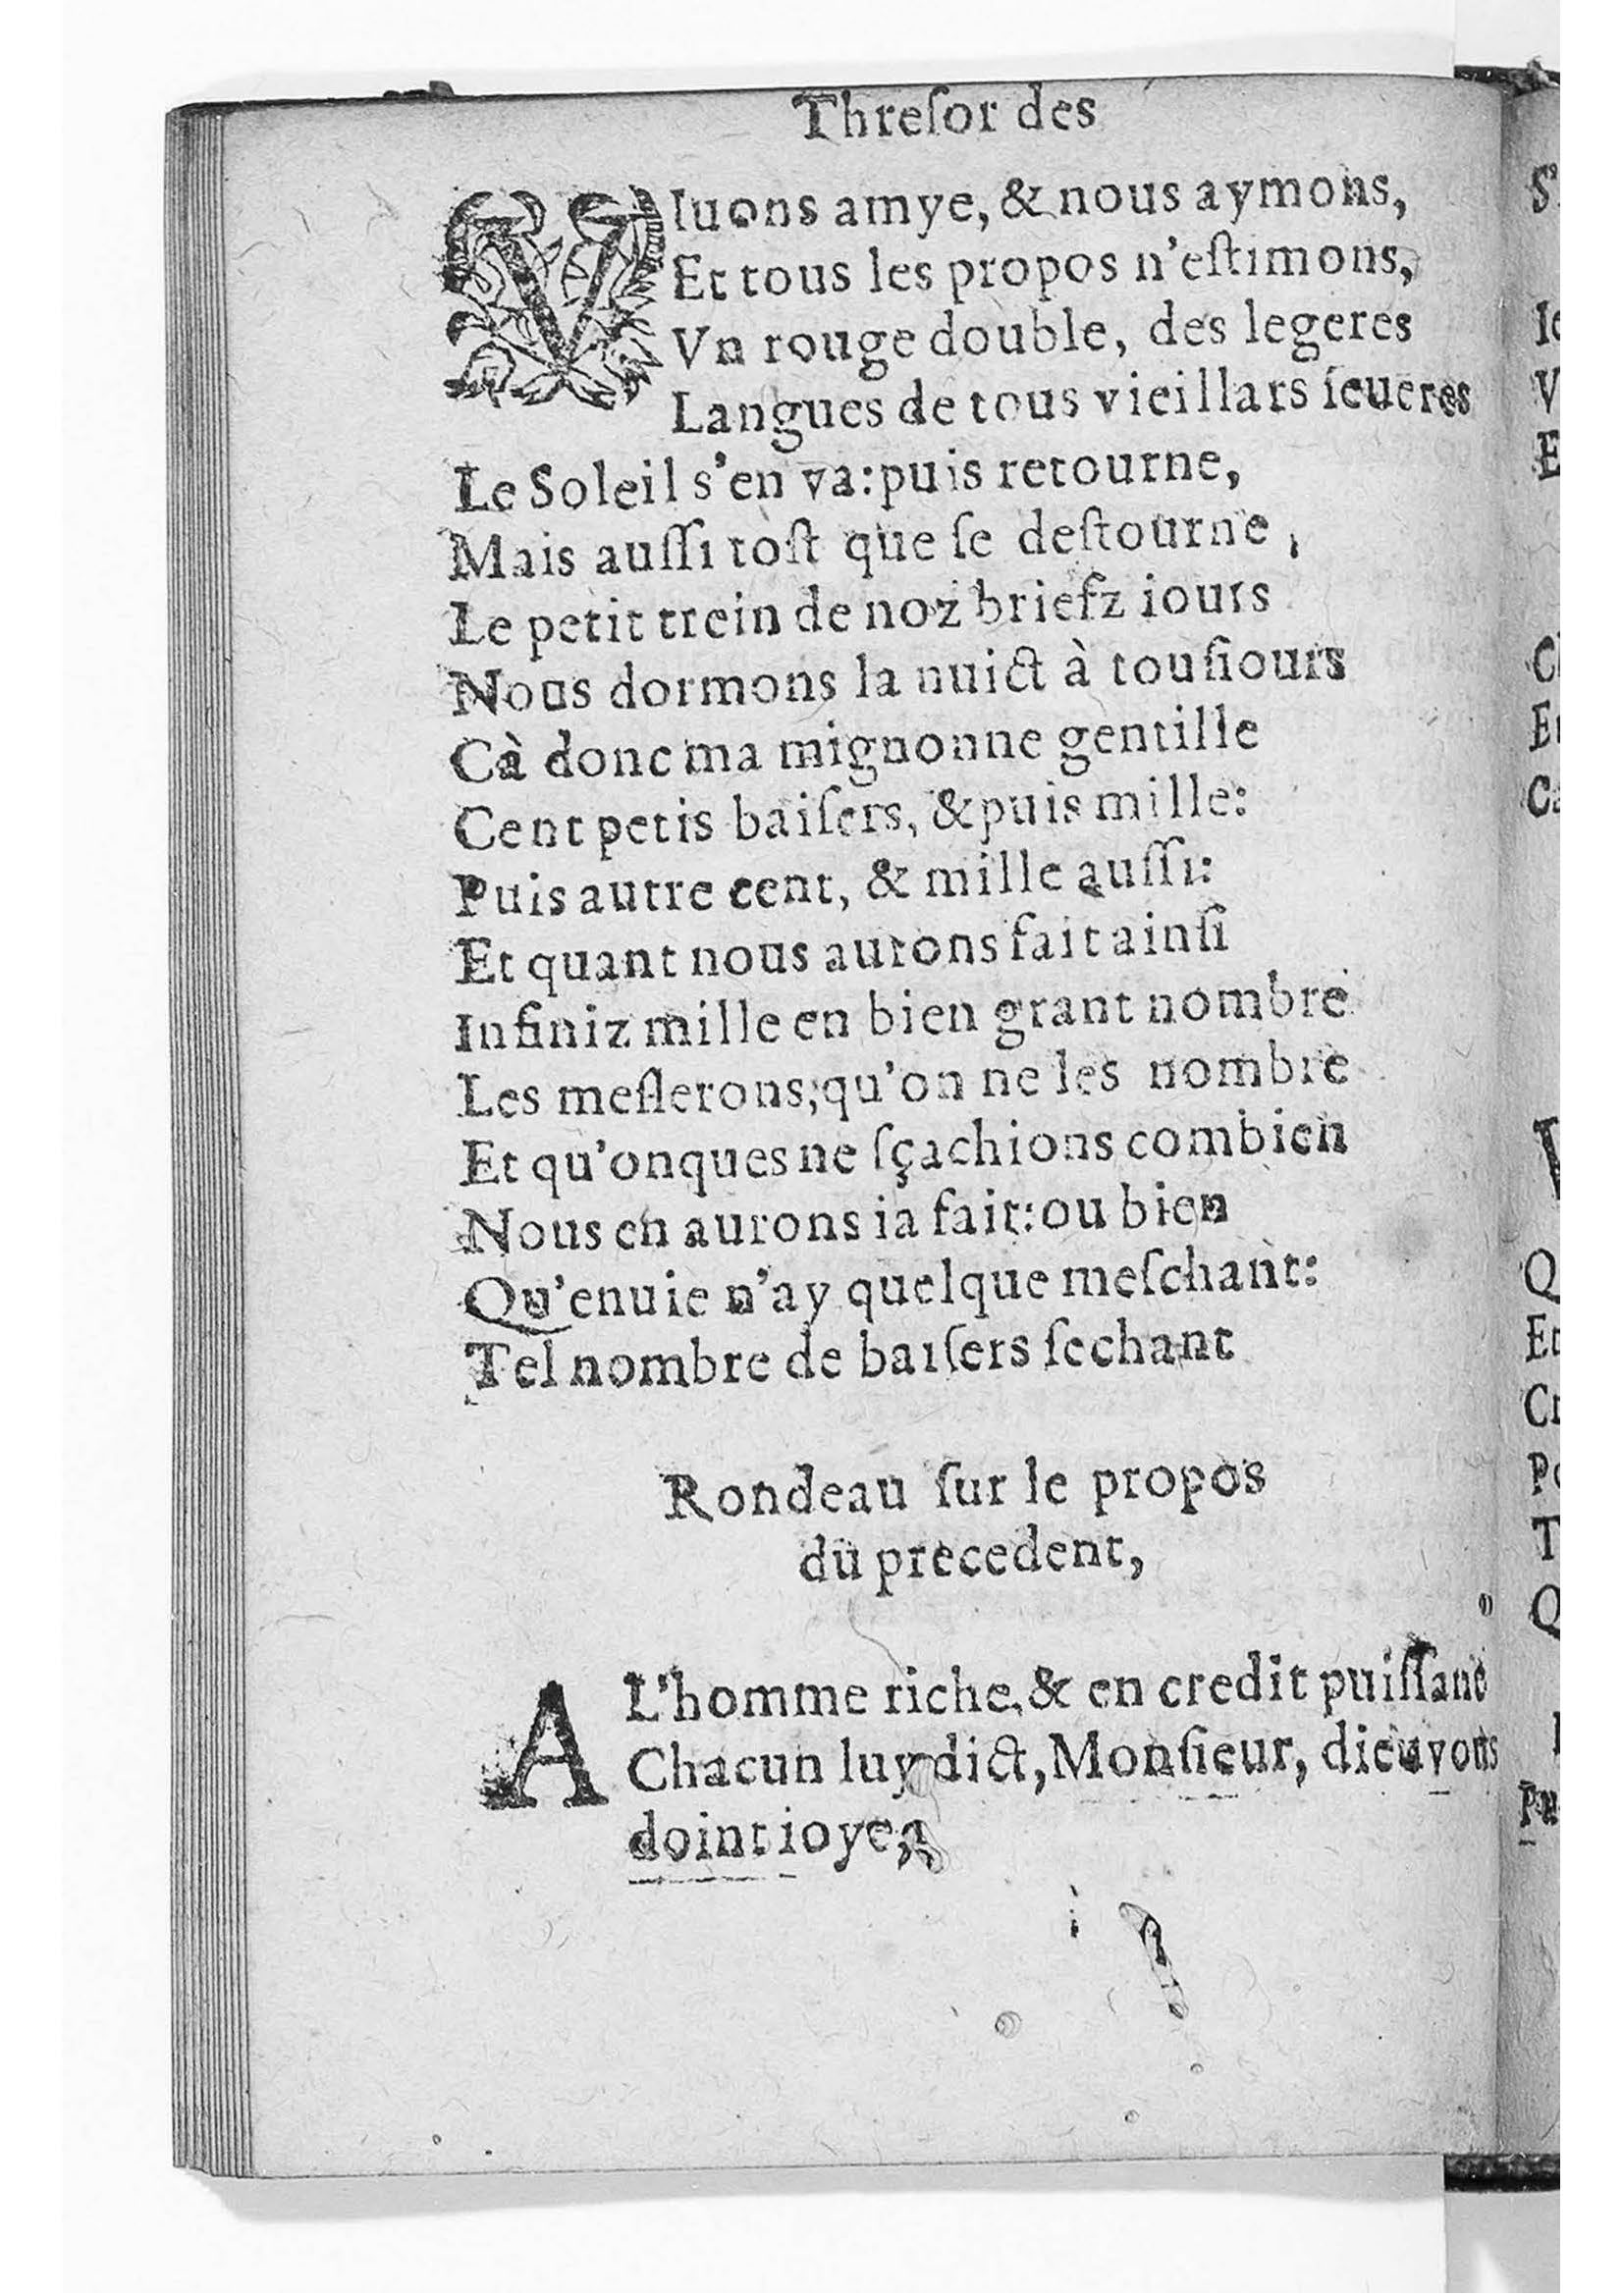 Threſor des
VIuons amye, & nous aymons,
Et tous les propos n'eſtimons,
Vn rouge double, des legeres
Langues de tous vieillars ſeueres
Le Soleil s'en va:puis retourne,
Mais auſſi toſt que ſe deſtourne,
Le petit trein de noz briefz iours
Nous dormons la nuict à touſiours
Cà donc ma mignonne gentille
Cent petis baiſers, & puis mille:
Puis autre cent, & mille auſſi:
Et quant nous aurons fait ainſi
Infiniz mille en bien grant nombre
Les meſlerons;qu'on ne les nombre
Et qu'onques ne ſçachions combien
Nous en aurons ia fait:ou bien
Qu'enuie n'ay quelque meſchant:
Tel nombre de baiſers ſechant
Rondeau ſur le propos
du precedent,
A L'homme riche, & en credit puiſſant
Chacun luy dict, Monſieur, dieu vous
doint ioye,